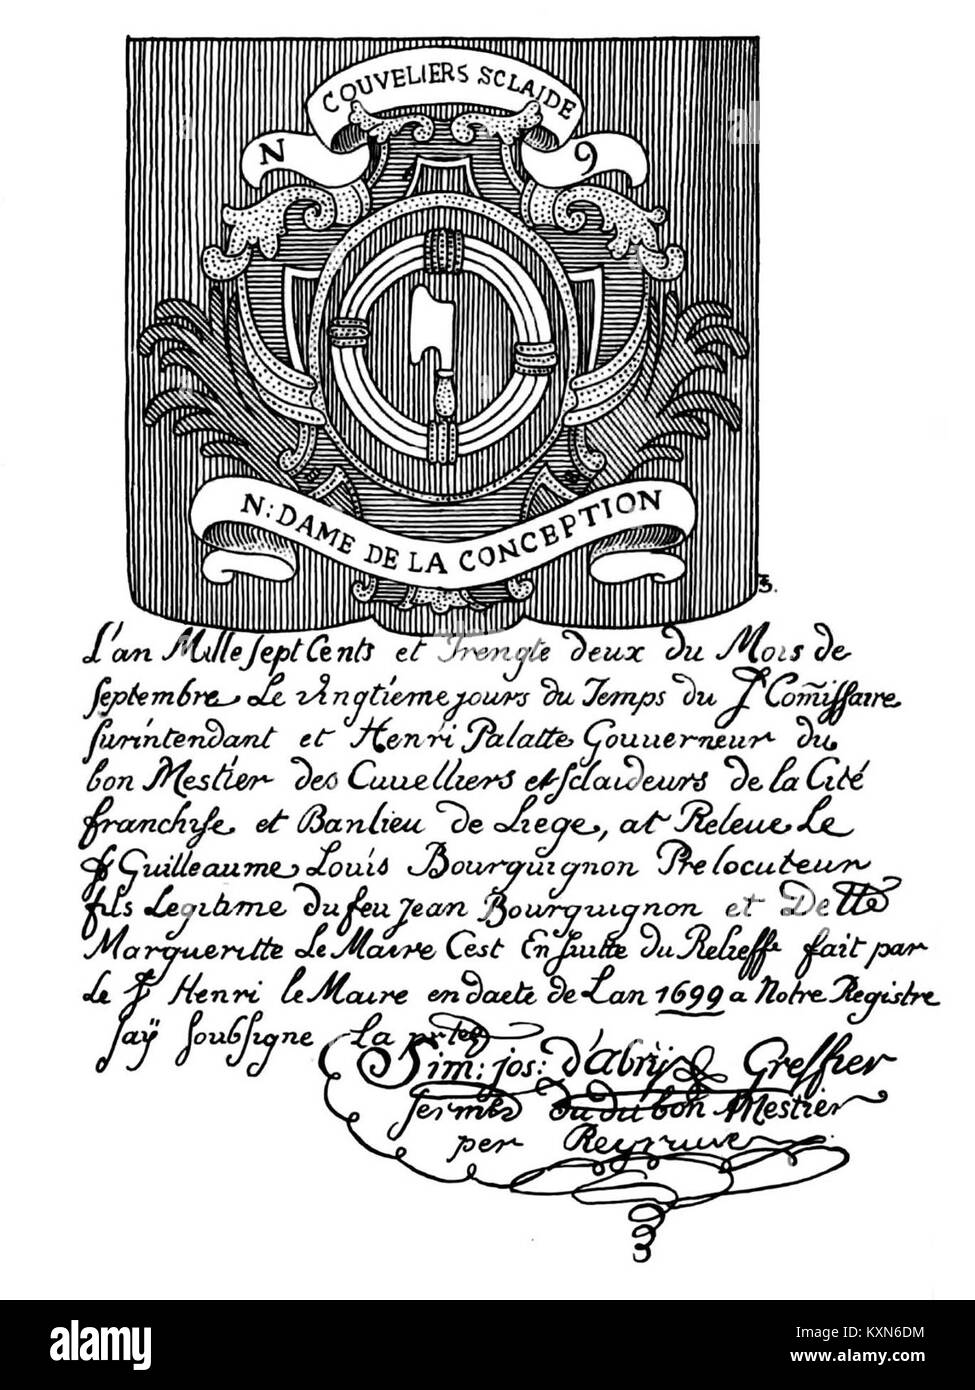 COUVELIERS SCLAIDE
N 9
N: DAME DE LA CONCEPTION
L'an Mille sept Cents et Trengte deux du Mois de
septembre Le vingtieme jours du Temps du Sr Com̃issaire
surintendant et Henri Palatte Gouverneur du
bon Mestier des Cuvelliers et sclaideurs de la Cité
franchise et Banlieu de Liege, at Releve Le
Sr Guilleaume Louis Bourguignon Prelocuteur
fils Legitime du feu Jean Bourguignon et Delle
Margueritte Le Maire Cest Ensuitte du Relieffe fait par
Le Sr Henri le Maire en daete de Lan 1699 a Notre Registre
Jaÿ soubsigne La
Sim: jos: d'Abrÿ Greffier
du dubon Mestier
per
alamy
Image ID: KXN6DM
www.alamy.com